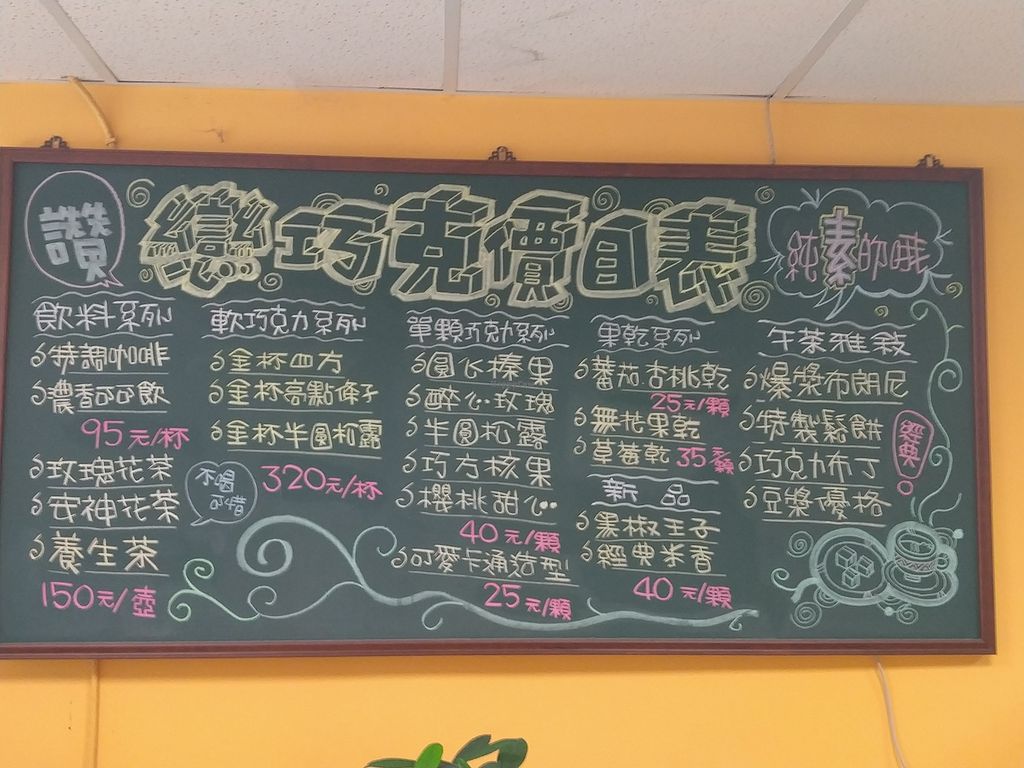 讚
戀巧克價目表
純素的哦
飲料系列
特調咖啡
濃香可可飲
95元/杯
玫瑰花茶
安神花茶
養生茶
150元/壺
不喝
可惜
軟巧克力系列
金杯四方
金杯高點條子
金杯半圓松露
320元/杯
單顆巧克力系列
圓心榛果
醉心玫瑰
半圓松露
巧方核果
櫻桃甜心
40元/顆
可愛卡通造型
25元/顆
果乾系列
蕃茄杏桃乾
25元/顆
無花果乾
草莓乾 35元/顆
新品
黑椒王子
經典米香
40元/顆
午茶雅敘
爆漿布朗尼
特製鬆餅
巧克力布丁
豆漿優格
經典!